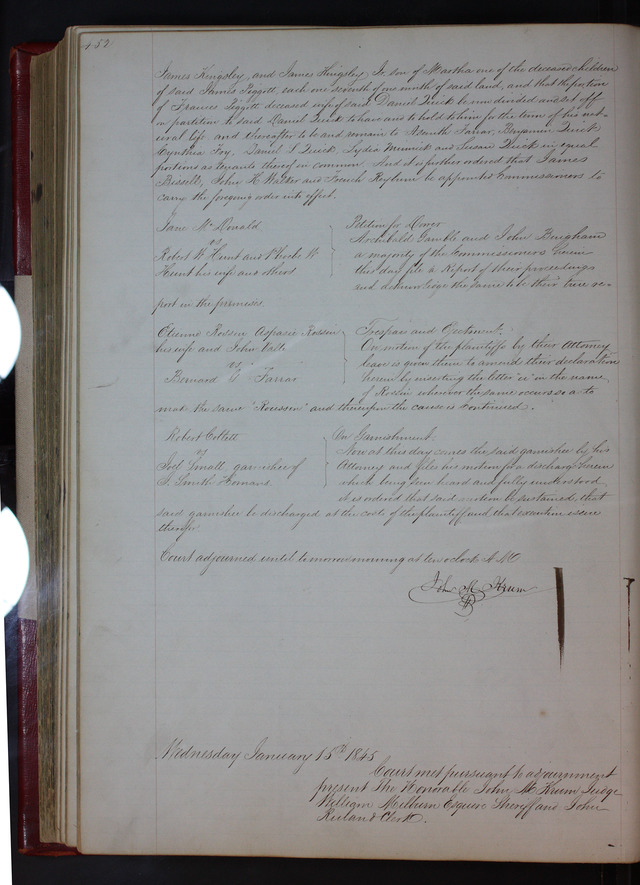 452
James Kingsley, and James Kingsley Jr. son of Martha one of the deceased children
of said James Piggott, each one seventh of one ninth of said land, and that the portion
of Frances Piggott deceased wife of said Daniel Quick be undivided and set off
in partition to said Daniel Quick to have and to hold to him for the term of his nat-
ural life and thereafter to be and remain to Farrar, Benjamin Quick
Cynthia Foy, Daniel S Quick, Lydia Minnick and Susan Quick in equal
portions as tenants thereof in common. And it is further ordered that James
Bissell, John K Walker and French Rayburn be appointed Commissioners to
carry the foregoing order into effect.
Jane McDonald
vs
Robert W Hunt and Phoebe W
Hunt his wife and others
Petition for Dower
Archibald Gamble and John Bingham
a majority of the Commissioners herein
this day file a Report of their proceedings
and acknowledge the same to be their true re-
port in the premises.
Etienne Rossin Aspasie Rossin
his wife and John Valle
vs
Bernard G Farrar
Trespass and Ejectment.
On motion of the plaintiffs by their Attorney
leave is given them to amend their declaration
herein by inserting the letter "u" in the name
of Rossin wherever the same occurs so as to
make the same "Roussin" and thereupon the cause is continued.
Robert Collett
vs
Joel Small, garnishee of
S. Smith Homans.
On Garnishment.
Now at this day comes the said garnishee by his
Attorney and files his motion for a discharge herein
which being seen heard and fully understood
it is ordered that said motion be sustained, that
said garnishee be discharged at the costs of the plaintiff and that execution issue
therefor.
Court adjourned until tomorrow morning at ten o'clock A.M.
John M Krum
Wednesday January 15th 1845
Court met pursuant to adjournment
present The Honorable John M Krum Judge
William Milburn Esquire Sheriff and John
Ruland Clerk.